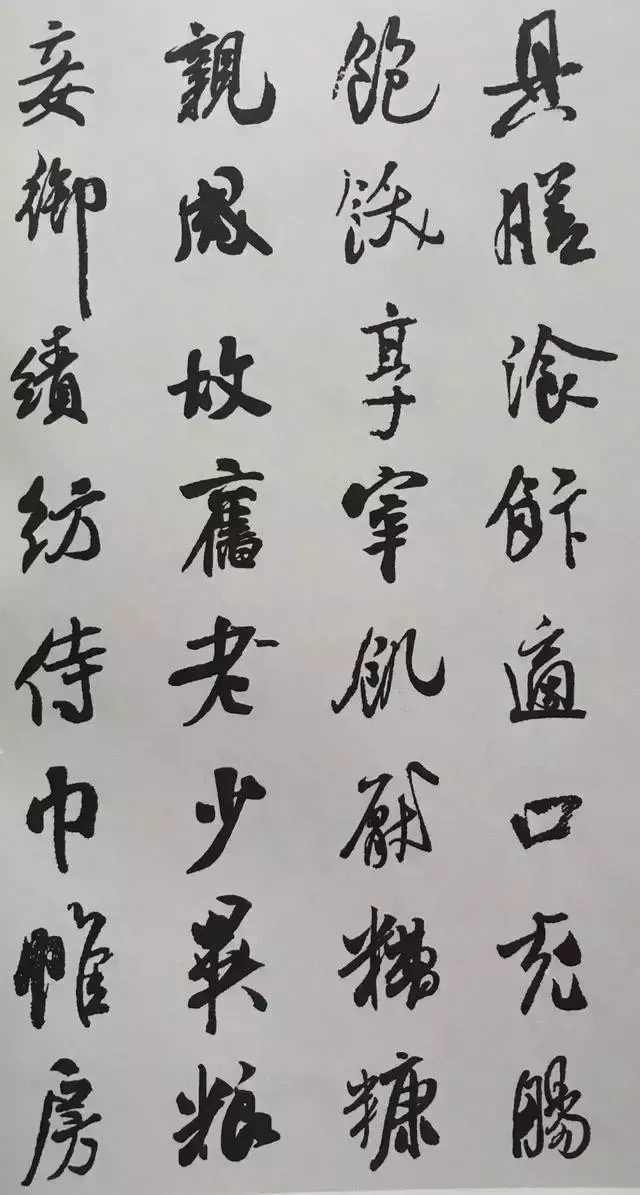 具膳湌飰適口充腸
飽飫享宰飢厭糟糠
親戚故舊老少異粮
妾御績紡侍巾帷房